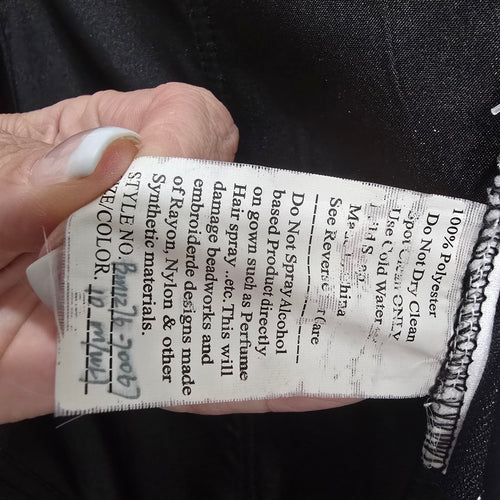 100% Polyester
Do Not Dry Clean
Spot Clean ONLY
Use Cold Water
See Reverse Care
Do Not Spray Alcohol
based Product directly
on gown such as Perfume
Hair spray ..etc.This will
damage beadworks and
embroiderde designs made
of Rayon, Nylon & other
Synthetic materials.
STYLE NO.
ZE/COLOR.